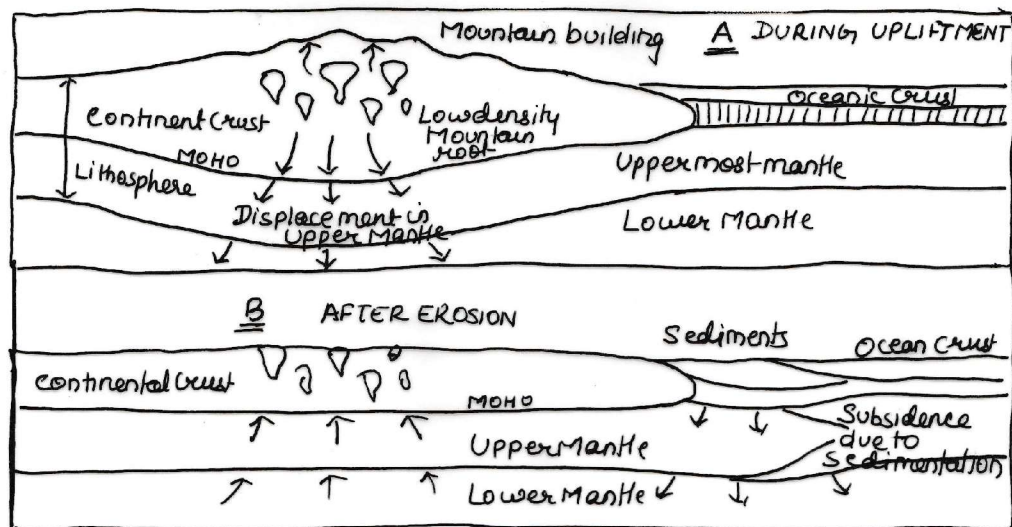 Mountain building
A DURING UPLIFTMENT
Oceanic Crust
Continent Crust
Lowdensity
Mountain
root
MOHO
Lithosphere
Uppermost mantle
Displacement in
Upper Mantle
Lower Mantle
B AFTER EROSION
Sediments
Ocean Crust
Continental Crust
MOHO
Subsidence
due to
Sedimentation
Upper Mantle
Lower Mantle